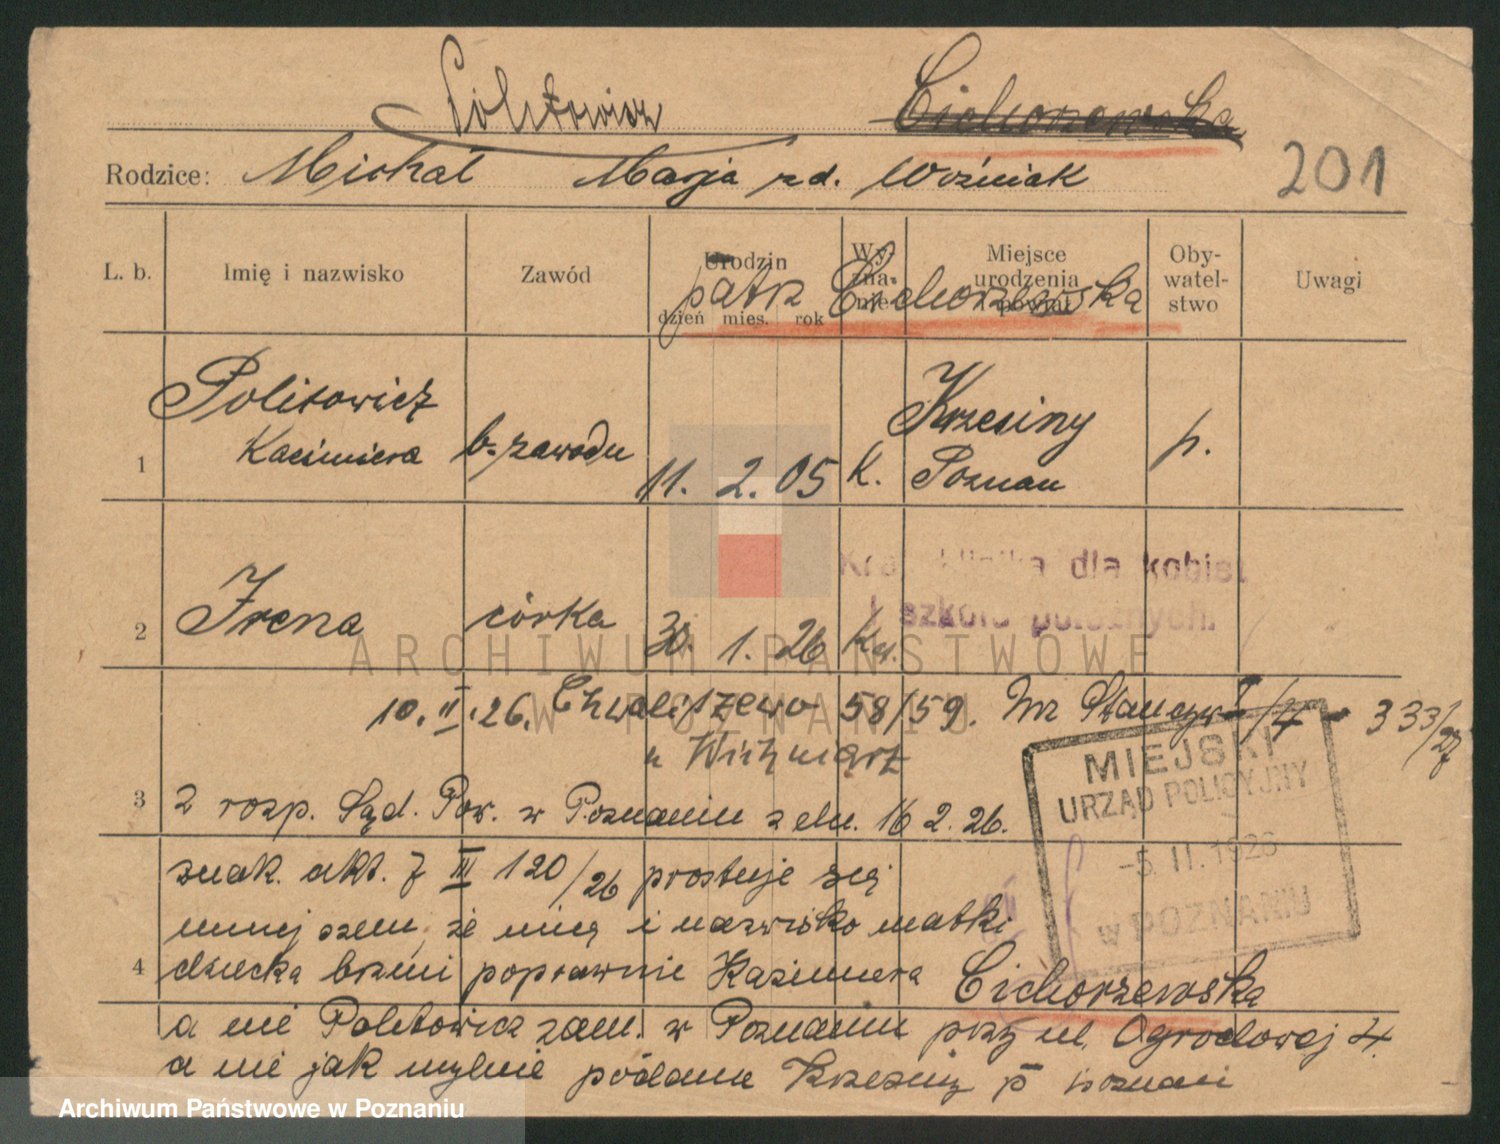 Politowicz Cichorzewska
Rodzice: Michał Marja zd. Woźniak 201
L. b. Imię i nazwisko Zawód Urodzin dzień mies. rok Wyznanie Miejsce urodzenia i powiat Obywatelstwo Uwagi
patrz Cichorzewska
1 Politowicz Kazimiera b. zawodu 11. 2. 05 k. Krzesiny Poznań p.
2 Irena córka 30. 1. 26 Kat.
Kraj. klinika dla kobiet
i szkoła położnych.
10. II. 26. Chwaliszewo 58/59. 333/27
u Wichniarz
MIEJSKI
URZĄD POLICYJNY
-5. II. 1926
w POZNANIU
3 z rozp. Sąd. Pow. w Poznaniu z dn. 16 2. 26.
znak. akt. 7 III 120/26 prostuje się
niniejszem, że imię i nazwisko matki
4 dziecka brzmi poprawnie Kazimiera Cichorzewska
a nie Politowicz zam. w Poznaniu przy ul. Ogrodowej 4.
a nie jak mylnie podano Krzesiny p Poznań
ARCHIWUM PAŃSTWOWE
W POZNANIU
Archiwum Państwowe w Poznaniu